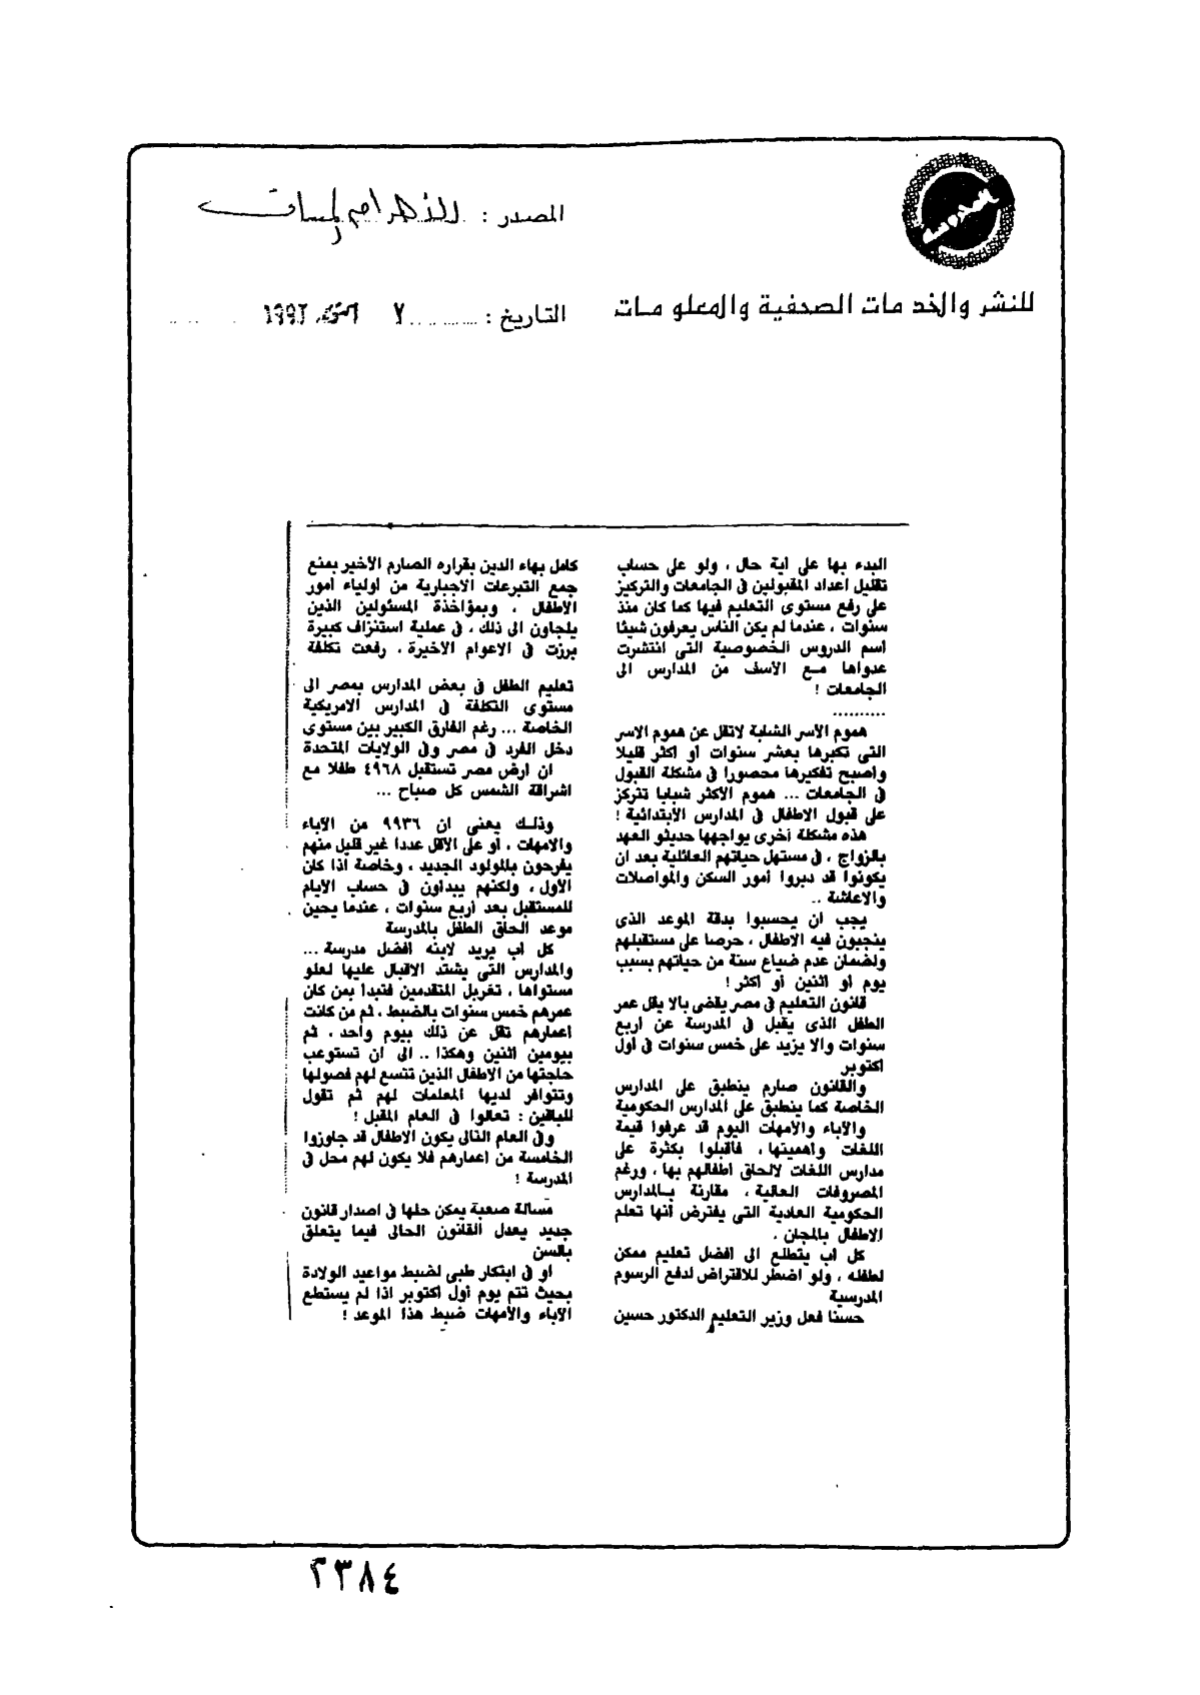 المصدر : الأهرام المسائى
للنشر والخدمات الصحفية والمعلومات
التاريخ : ............ ٧ ١٩٩٢
البدء بها على أية حال ، ولو على حساب
تقليل اعداد المقبولين فى الجامعات والتركيز
على رفع مستوى التعليم فيها كما كان منذ
سنوات ، عندما لم يكن الناس يعرفون شيئا
اسم الدروس الخصوصية التى انتشرت
عدواها مع الأسف من المدارس الى
الجامعات !
..........
هموم الأسر الشابة لاتقل عن هموم الاسر
التى تكبرها بعشر سنوات أو أكثر قليلا
واصبح تفكيرها محصورا فى مشكلة القبول
فى الجامعات ... هموم الاكثر شبابا تتركز
على قبول الاطفال فى المدارس الابتدائية !
هذه مشكلة أخرى يواجهها حديثو العهد
بالزواج ، فى مستهل حياتهم العائلية بعد ان
يكونوا قد دبروا أمور السكن والمواصلات
والاعاشة ..
يجب ان يحسبوا بدقة الموعد الذى
ينجبون فيه الاطفال ، حرصا على مستقبلهم
ولضمان عدم ضياع سنة من حياتهم بسبب
يوم أو اثنين أو أكثر !
قانون التعليم فى مصر يقضى بالا يقل عمر
الطفل الذى يقبل فى المدرسة عن أربع
سنوات والا يزيد على خمس سنوات فى أول
اكتوبر
والقانون صارم ينطبق على المدارس
الخاصة كما ينطبق على المدارس الحكومية
والآباء والأمهات اليوم قد عرفوا قيمة
اللغات واهميتها ، فاقبلوا بكثرة على
مدارس اللغات لالحاق اطفالهم بها ، ورغم
المصروفات العالية ، مقارنة بالمدارس
الحكومية العادية التى يفترض أنها تعلم
الاطفال بالمجان .
كل اب يتطلع الى افضل تعليم ممكن
لطفله ، ولو اضطر للاقتراض لدفع الرسوم
المدرسية
حسنا فعل وزير التعليم الدكتور حسين
كامل بهاء الدين بقراره الصارم الأخير بمنع
جمع التبرعات الاجبارية من أولياء أمور
الأطفال ، وبمؤاخذة المسئولين الذين
يلجاون الى ذلك ، فى عملية استنزاف كبيرة
برزت فى الاعوام الاخيرة ، رفعت تكلفة
تعليم الطفل فى بعض المدارس بمصر الى
مستوى التكلفة فى المدارس الامريكية
الخاصة ... رغم الفارق الكبير بين مستوى
دخل الفرد فى مصر وفى الولايات المتحدة
ان ارض مصر تستقبل ٤٩٦٨ طفلا مع
اشراقة الشمس كل صباح ...
وذلك يعنى ان ٩٩٣٦ من الآباء
والامهات ، أو على الأقل عددا غير قليل منهم
يفرحون بالمولود الجديد ، وخاصة اذا كان
الأول ، ولكنهم يبدأون فى حساب الأيام
للمستقبل بعد أربع سنوات ، عندما يحين
موعد الحاق الطفل بالمدرسة
كل أب يريد لابنه افضل مدرسة ...
والمدارس التى يشتد الاقبال عليها لعلو
مستواها ، تغربل المتقدمين فتبدا بمن كان
عمرهم خمس سنوات بالضبط ، ثم من كانت
اعمارهم تقل عن ذلك بيوم واحد ، ثم
بيومين اثنين وهكذا .. الى ان تستوعب
حاجتها من الاطفال الذين تتسع لهم فصولها
وتتوافر لديها المعلمات لهم ثم تقول
للباقين : تعالوا فى العام المقبل !
وفى العام التالى يكون الاطفال قد جاوزوا
الخامسة من اعمارهم فلا يكون لهم محل فى
المدرسة !
مسالة صعبة يمكن حلها فى اصدار قانون
جديد يعدل القانون الحالى فيما يتعلق
بالسن
او فى ابتكار طبى لضبط مواعيد الولادة
بحيث تتم يوم أول اكتوبر اذا لم يستطع
الآباء والأمهات ضبط هذا الموعد !
٢٣٨٤